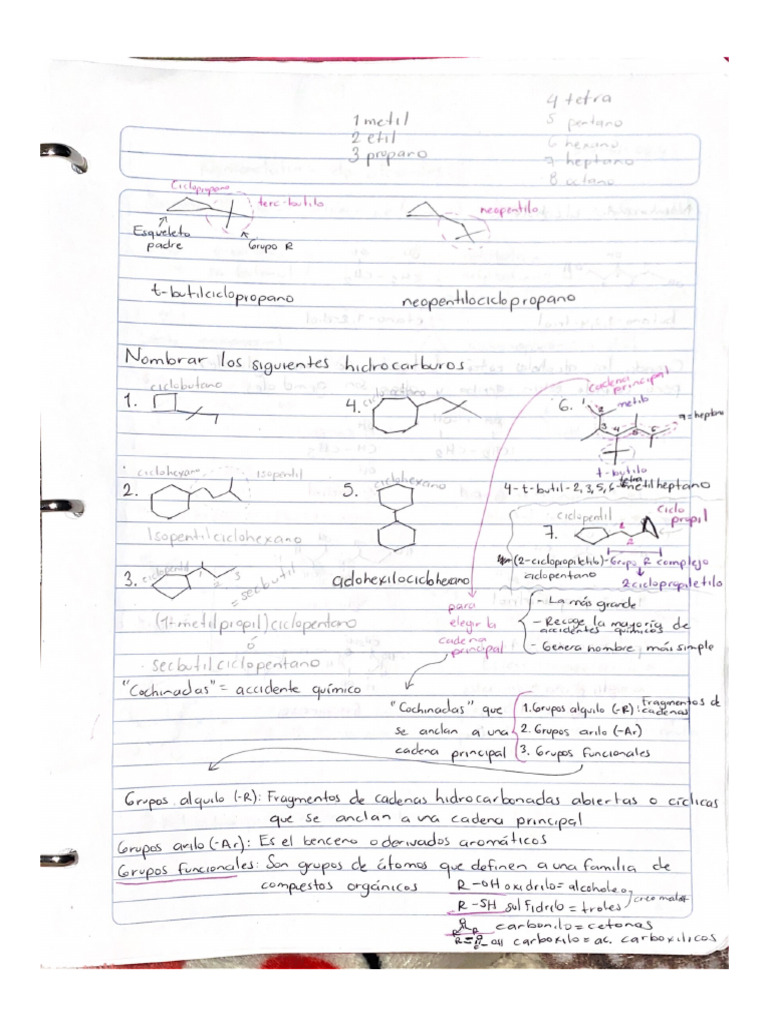 4 tetra
1 metil
5 pentano
2 etil
6 hexano
3 propano
7 heptano
8 octano
Ciclopropano
terc-butilo
neopentilo
Esqueleto
padre
Grupo R
t-butilciclopropano
neopentilociclopropano
Nombrar los siguientes hidrocarburos
ciclobutano
1.
4.
6.
cadena
principal
metilo
1
2
3
4
5
6
7=heptano
t-butilo
4-t-butil-2,3,5,6-tetrametilheptano
ciclohexano
isopentil
2.
Isopentilciclohexano
5.
ciclohexano
ciclohexilociclohexano
ciclopentil
ciclo
propil
7.
1
2
(2-ciclopropiletilo)-Grupo R complejo
ciclopentano
2ciclopropiletilo
3.
ciclopentil
1
2
3
=secbutil
(1-metilpropil)ciclopentano
ó
secbutilciclopentano
para
elegir la
cadena
principal
- La más grande
- Recoge la mayoría de
accidentes químicos
- Genera nombre más simple
"Cochinadas"= accidente químico
"Cochinadas" que
se anclan a una
cadena principal
1. Grupos alquilo (-R): Fragmentos de
cadenas
2. Grupos arilo (-Ar)
3. Grupos Funcionales
Grupos alquilo (-R): Fragmentos de cadenas hidrocarbonadas abiertas o cíclicas
que se anclan a una cadena principal
Grupos arilo (-Ar): Es el benceno o derivados aromáticos
Grupos funcionales: Son grupos de átomos que definen a una familia de
compestos orgánicos
R-OH oxidrilo= alcoholes
R-SH sulfidrilo = troles
O
R R
carbonilo= cetonas
carboxilo= ac. carboxilicos